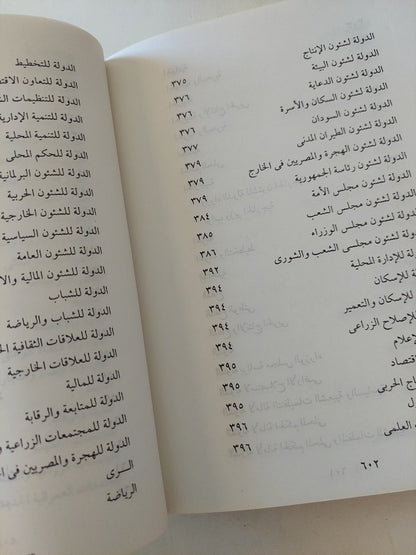 الدولة لشئون الإنتاج
الدولة لشئون البيئة
الدولة لشئون الدعاية
الدولة لشئون السكان والأسرة
الدولة لشئون السودان
الدولة لشئون الطيران المدنى
الدولة لشئون الهجرة والمصريين فى الخارج
الدولة لشئون رئاسة الجمهورية
الدولة لشئون مجلس الأمة
الدولة لشئون مجلس الشعب
الدولة لشئون مجلس الوزراء
الدولة لشئون مجلسى الشعب والشورى
للإدارة المحلية
للإسكان
للإسكان والتعمير
الزراعى
الحربى
العلمى
٣٧٥
٣٧٦
٣٧٦
٣٧٦
٣٧٧
٣٧٩
٣٧٩
٣٨٤
٣٨٥
٣٨٦
٣٩٢
٣٩٤
٣٩٤
٣٩٤
٣٩٥
٣٩٥
٣٩٥
٣٩٦
٣٩٦
٦٠٢
الدولة للتخطيط
الدولة للتعاون
الدولة للتنظيمات
الدولة للتنمية الإدارية
الدولة للتنمية المحلية
الدولة للحكم المحلى
الدولة للشئون البرلمانية
الدولة للشئون الحربية
الدولة للشئون الخارجية
الدولة للشئون السياسية
الدولة للشئون العامة
الدولة للشئون المالية
الدولة للشباب
الدولة للشباب والرياضة
الدولة للعلاقات الثقافية
الدولة للعلاقات الخارجية
الدولة للمالية
الدولة للمتابعة والرقابة
الدولة للمجتمعات الزراعية
الدولة للهجرة والمصريين فى
الرى
الرياضة